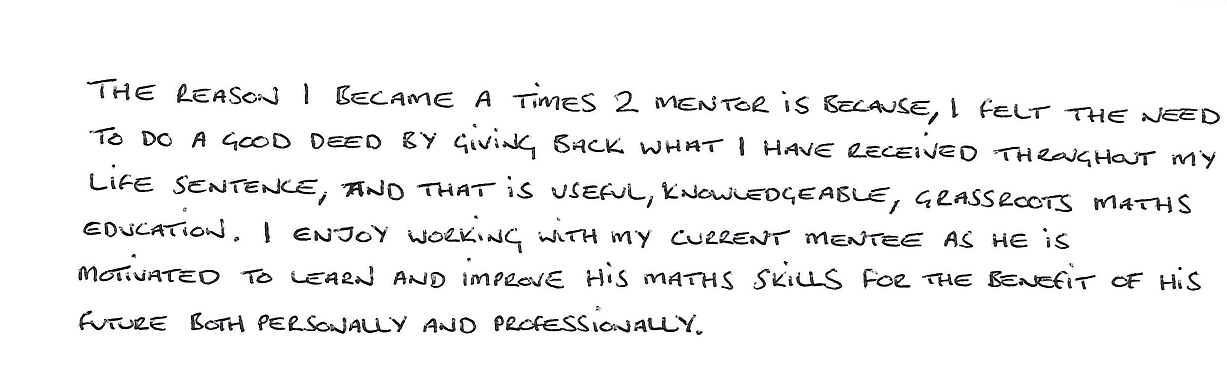 THE REASON I BECAME A TIMES 2 MENTOR IS BECAUSE, I FELT THE NEED
TO DO A GOOD DEED BY GIVING BACK WHAT I HAVE RECEIVED THROUGHOUT MY
LIFE SENTENCE, AND THAT IS USEFUL, KNOWLEDGEABLE, GRASSROOTS MATHS
EDUCATION. I ENJOY WORKING WITH MY CURRENT MENTEE AS HE IS
MOTIVATED TO LEARN AND IMPROVE HIS MATHS SKILLS FOR THE BENEFIT OF HIS
FUTURE BOTH PERSONALLY AND PROFESSIONALLY.